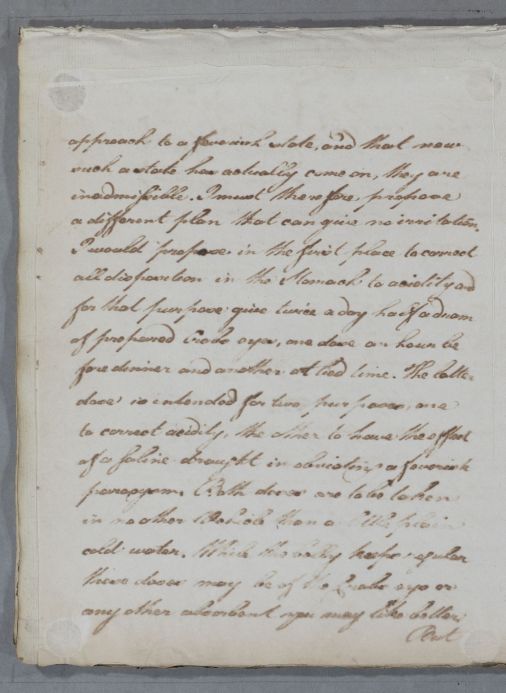 approach to a feverish state, and that now
such a state has actually come on, they are
inadmissible. I must therefore, propose
a different plan that can give no irritation.
I would propose in the first place to correct
all disposition in the Stomach to acidity and
for that purpose give twice a day half a dram
of prepared Crabs eyes, one dose an hour be
fore dinner and another at bed time. The latter
dose is intended for two purposes, one
to correct acidity, the other to have the effect
of a saline draught in obviating a feverish
paroxysm. Both doses are to be taken
in no other Vehicle than a little plain
cold water. While the belly keeps regular
these doses may be of the Crabs eyes or
any other absorbent you may like better
But